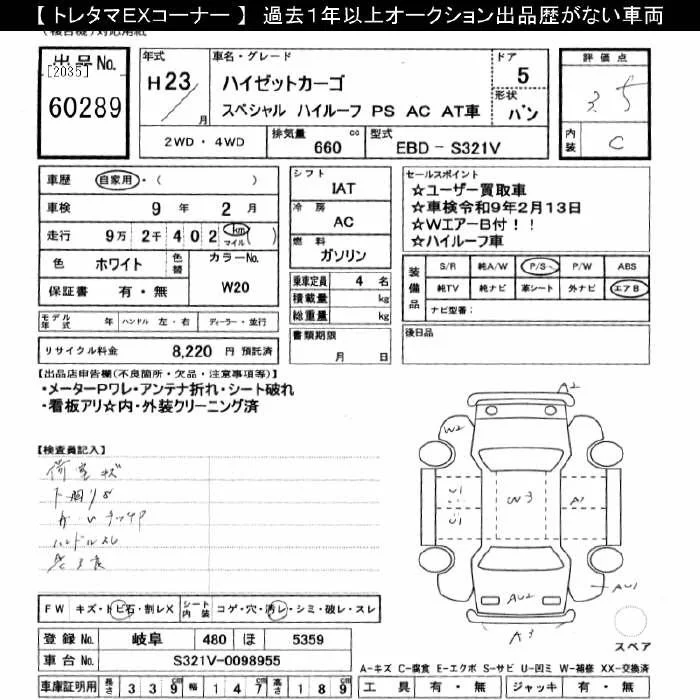 【 トレタマEXコーナー 】 過去1年以上オークション出品歴がない車両
出品No.
[2035]
60289
年式
H23/
月
車名・グレード
ハイゼットカーゴ
スペシャル ハイルーフ PS AC AT車
ドア
5
形状
バン
評価点
3.5
内装
C
2WD・4WD
排気量
660
cc
型式
EBD－S321V
車歴
自家用・( )
車検
9 年 2 月
走行
9万 2千 402 km マイル ( )
色
ホワイト
色替
カラーNo.
W20
保証書
有・無
モデル年式
年
ハンドル 左・右
ディーラー・並行
リサイクル料金
8,220 円 預託済
シフト
IAT
冷房
AC
燃料
ガソリン
乗車定員
4 名
積載量
kg
総重量
kg
書類期限
月 日
セールスポイント
☆ユーザー買取車
☆車検令和9年2月13日
☆WエアーB付！！
☆ハイルーフ車
装備品
S/R
純A/W
P/S
P/W
ABS
純TV
純ナビ
革シート
外ナビ
エアB
ナビ型番：
後日品
【出品店申告欄(不良箇所・欠品・注意事項等)】
・メーターPワレ・アンテナ折れ・シート破れ
・看板アリ☆内・外装クリーニング済
【検査員記入】
荷室キズ
ハンドルスレ
A2
W2
U1
U1
W3
A1
AU2
AU1
A3
スペア
FW
キズ・トビ石・割レX
シート内装
コゲ・穴・汚レ・シミ・破レ・スレ
登録No.
岐阜 480 ほ 5359
車台No.
S321V-0098955
車庫証明用
長さ
339
幅
147
高さ
189
A-キズ C-腐食 E-エクボ S-サビ U-凹ミ W-補修 XX-交換済
工具
有・無
ジャッキ
有・無